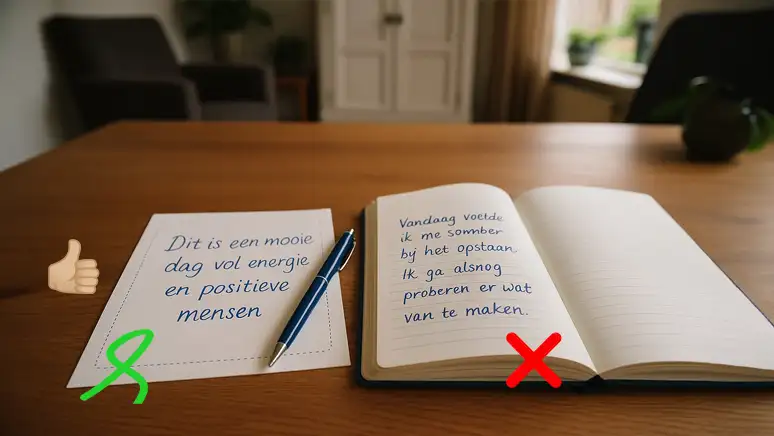 Dit is een mooie
dag vol energie
en positieve
mensen
Vandaag voelde
ik me somber
bij het opstaan.
Ik ga alsnog
proberen er wat
van te maken.